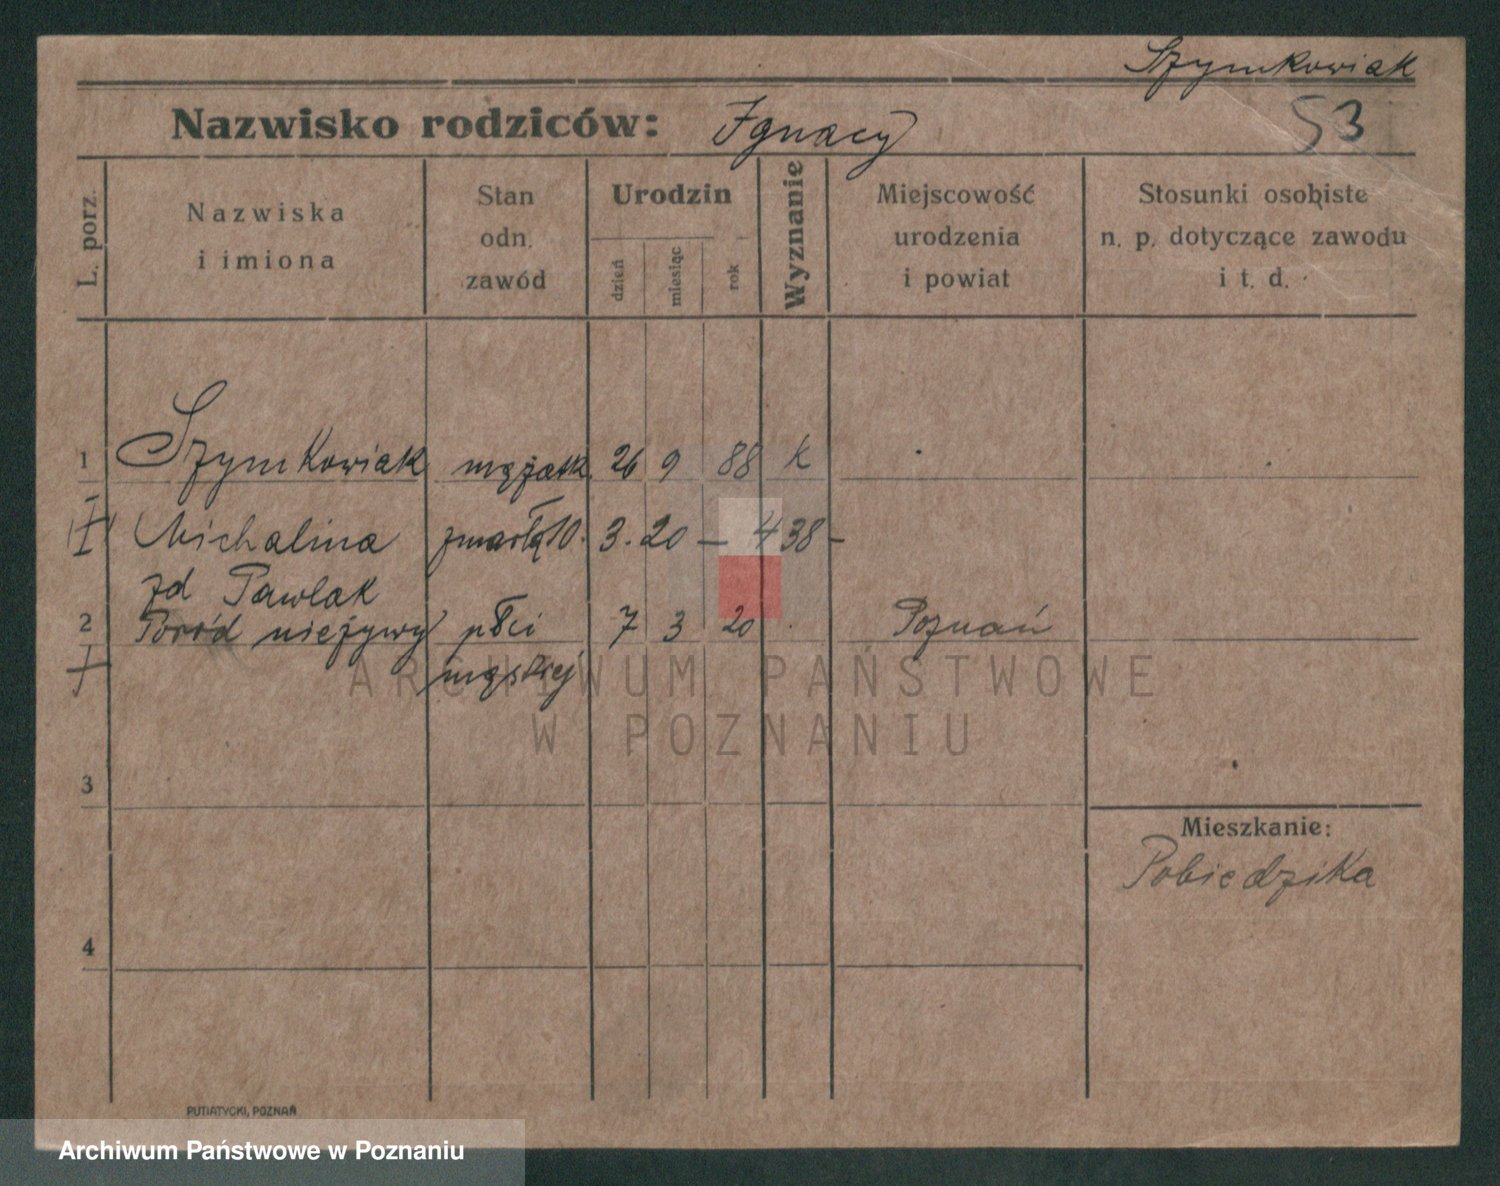 Szymkowiak
Nazwisko rodziców: Ignacy
53
L. porz.
Nazwiska
i imiona
Stan
odn.
zawód
Urodzin
dzień
miesiąc
rok
Wyznanie
Miejscowość
urodzenia
i powiat
Stosunki osobiste
n. p. dotyczące zawodu
i t. d.
1 Szymkowiak mężatk. 26 9 88 k
Michalina zmarła 10. 3. 20 — 438 —
zd Pawlak
2 Poród nieżywy płci 7 3 20 Poznań
męskiej
ARCHIWUM PAŃSTWOWE
W POZNANIU
3
Mieszkanie:
Pobiedziska
4
PUTIATYCKI, POZNAŃ
Archiwum Państwowe w Poznaniu